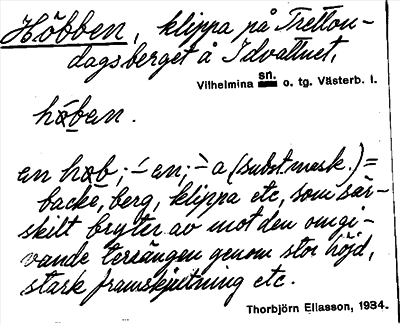 Höbben, klippa på Tretton-
dagsberget å Idvattnet,
Vilhelmina sn. o. tg. Västerb. l.
höben.
en höb; -en; -a (subst. mask.) =
backe, berg, klippa etc, som sär-
skilt bryter av mot den omgi-
vande terrängen genom stor höjd,
stark framskjutning etc.
Thorbjörn Eliasson, 1934.